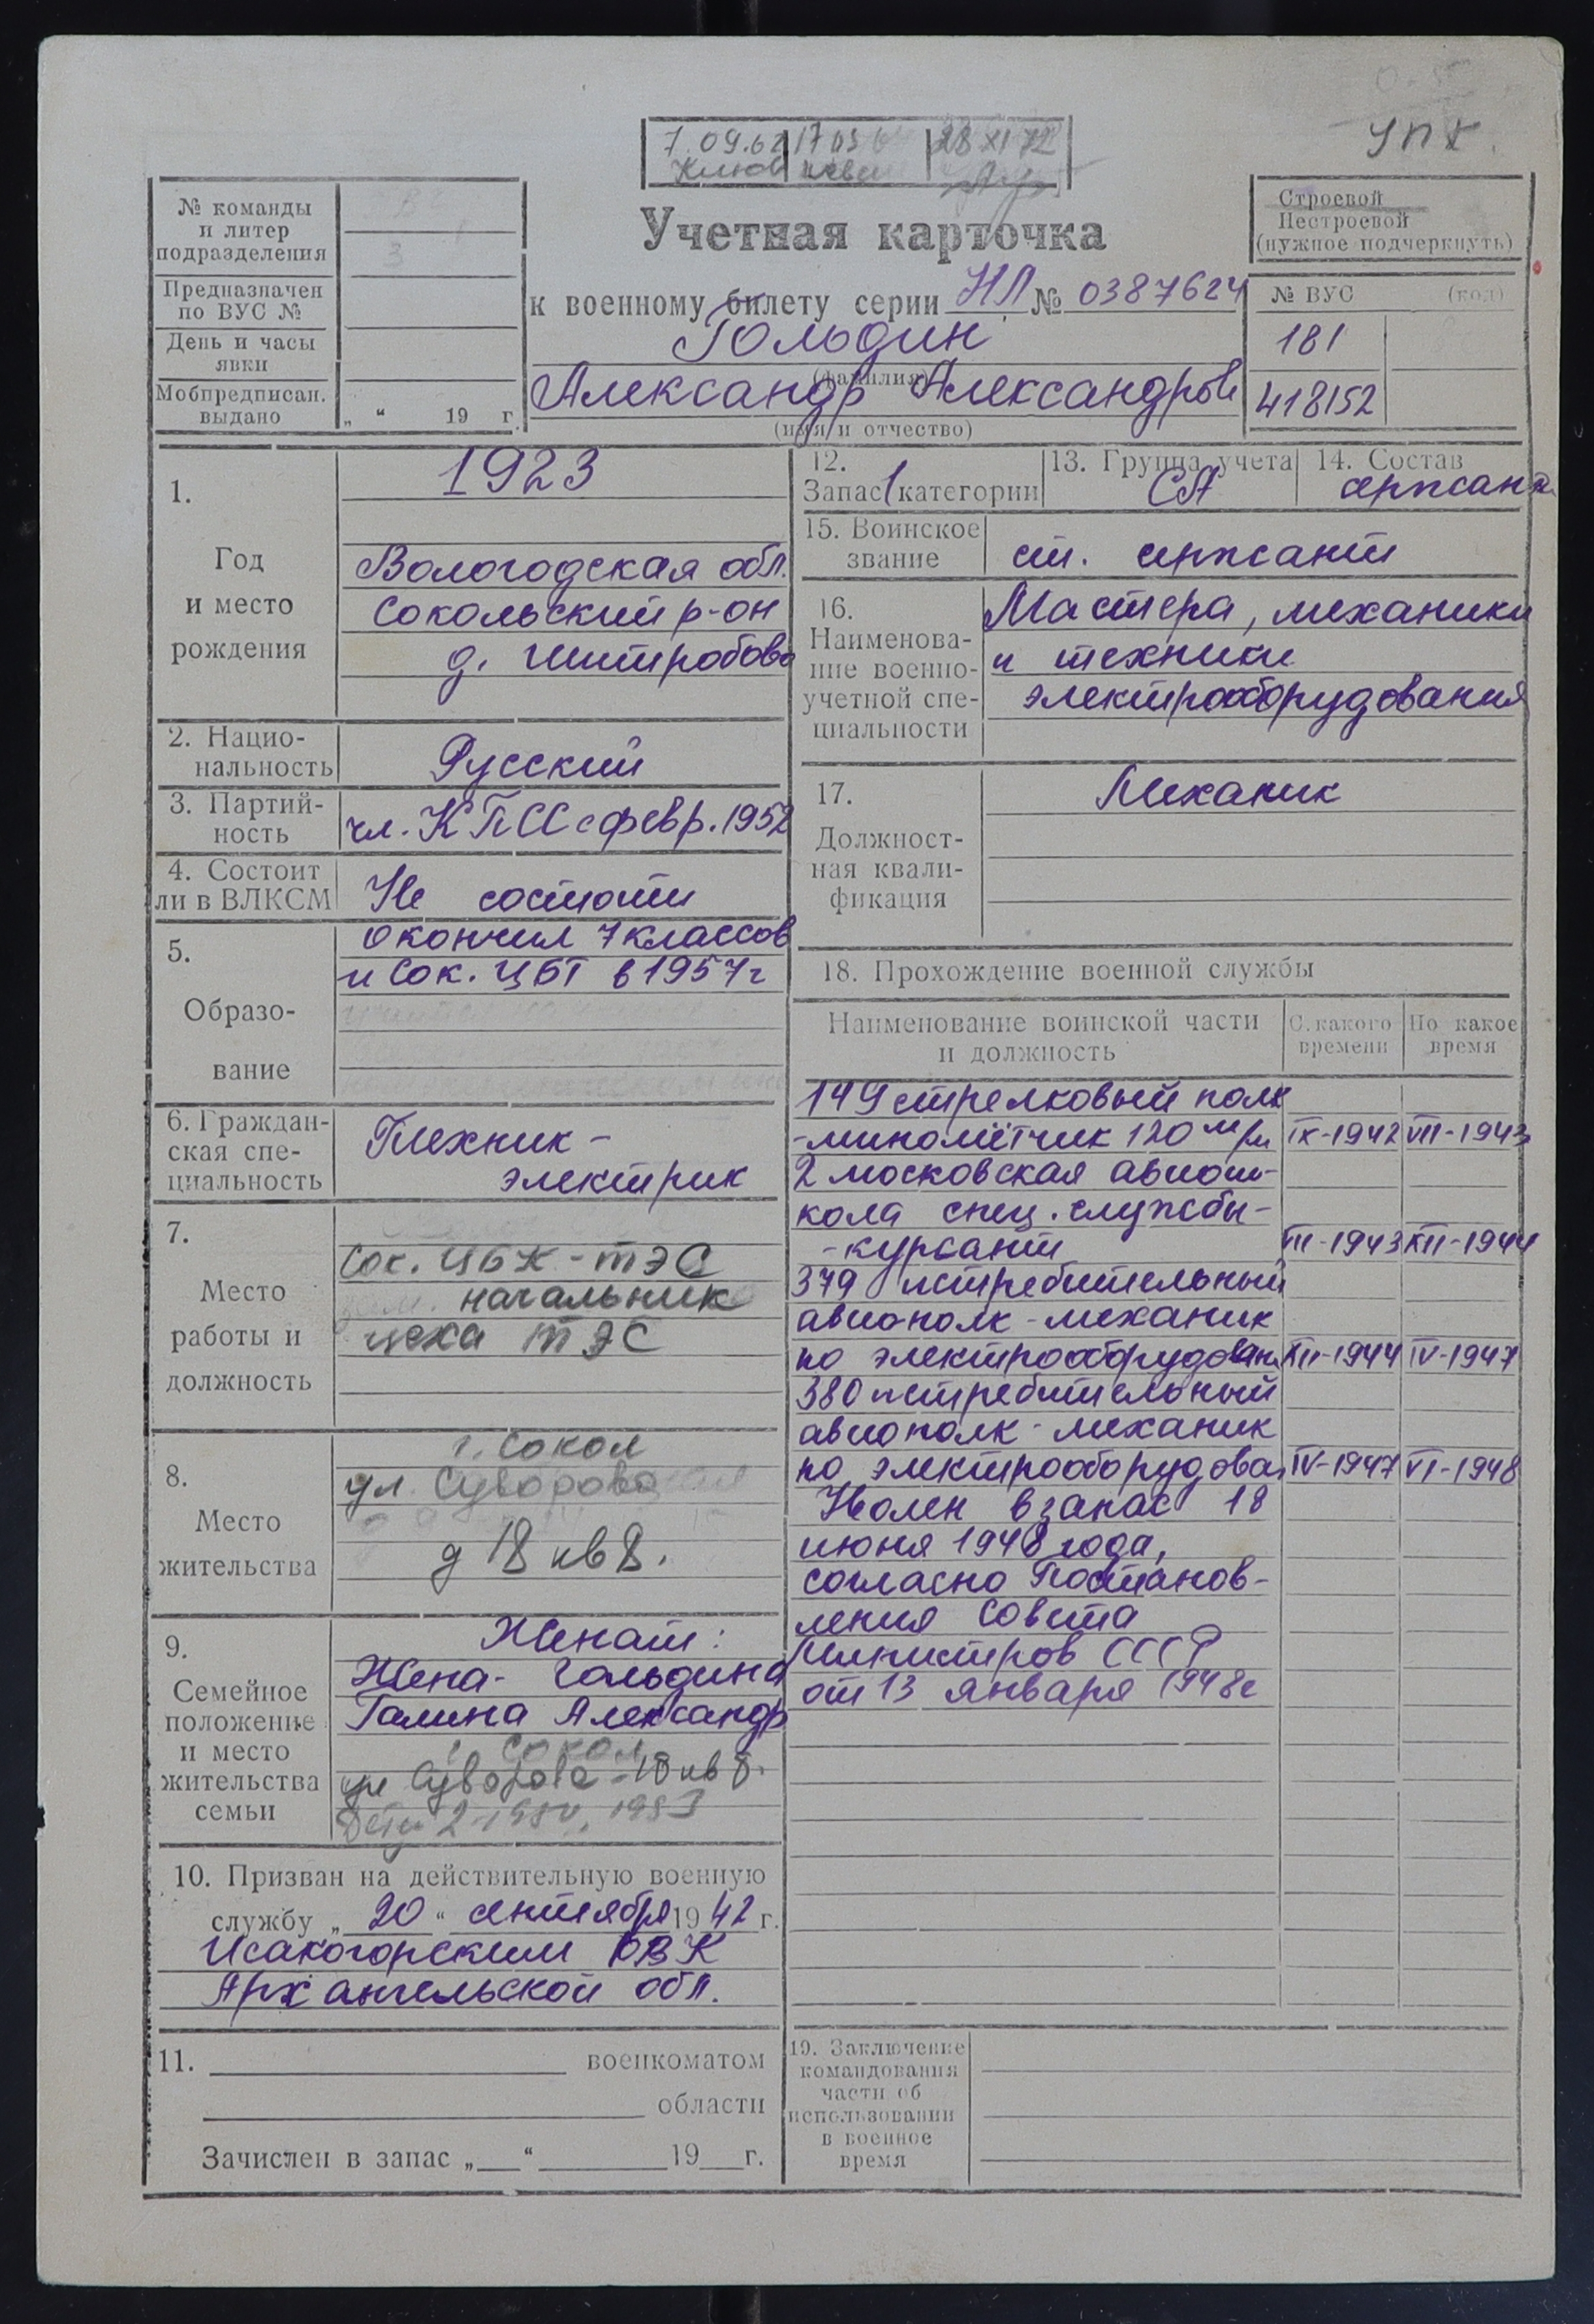 УПК
7.09.62 17 03 28 XI 72
№ команды
и литер
подразделения
Предназначен
по ВУС №
День и часы
явки
Мобпредписан.
выдано
„ “ 19 г.
Учетная карточка
к военному билету серии НЛ № 0387624
Гольдин
(фамилия)
Александр Александров
(имя и отчество)
Строевой
Нестроевой
(нужное подчеркнуть)
№ ВУС (код)
181
418152
1.
Год
и место
рождения
1923
Вологодская обл.
Сокольский р-он
д. Шитробово
2. Нацио-
нальность
Русский
3. Партий-
ность
чл. КПСС с февр. 1952
4. Состоит
ли в ВЛКСМ
Не состоит
5.
Образо-
вание
Окончил 7 классов
и Сок. ЦБТ в 1957г
6. Граждан-
ская спе-
циальность
Техник-
электрик
7.
Место
работы и
должность
Сок. ЦБК - ТЭС
начальник
цеха ТЭС
8.
Место
жительства
г. Сокол
ул. Суворова
д 18 кв 8.
9.
Семейное
положение
и место
жительства
семьи
Женат:
Жена- Гольдина
Галина Александр
г. Сокол
ул Суворова-18 кв 8.
Дети 2 1950, 1953
10. Призван на действительную военную
службу „ 20 “ сентября 19 42 г.
Исакогорским РВК
Архангельской обл.
11. военкоматом
области
Зачислен в запас „ “ 19 г.
12.
Запас 1 категории
13. Группа учета
СА
14. Состав
сержант
15. Воинское
звание
ст. сержант
16.
Наименова-
ние военно-
учетной спе-
циальности
Мастера, механики
и техники
электрооборудования
17.
Должност-
ная квали-
фикация
Механик
18. Прохождение военной службы
Наименование воинской части
и должность
С какого
времени
По какое
время
149 стрелковый полк
-миномётчик 120 м/м IX-1942 VIII-1943
2 московская авиош-
кола спец. службы-
-курсант VIII-1943 XII-1944
379 истребительный
авиополк - механик
по электрооборудован XII-1944 IV-1947
380 истребительный
авиополк - механик
по электрооборудова IV-1947 VI-1948
Уволен в запас 18
июня 1948 года,
согласно Постанов-
ления Совета
Министров СССР
от 13 января 1948г
19. Заключение
командования
части об
использовании
в военное
время